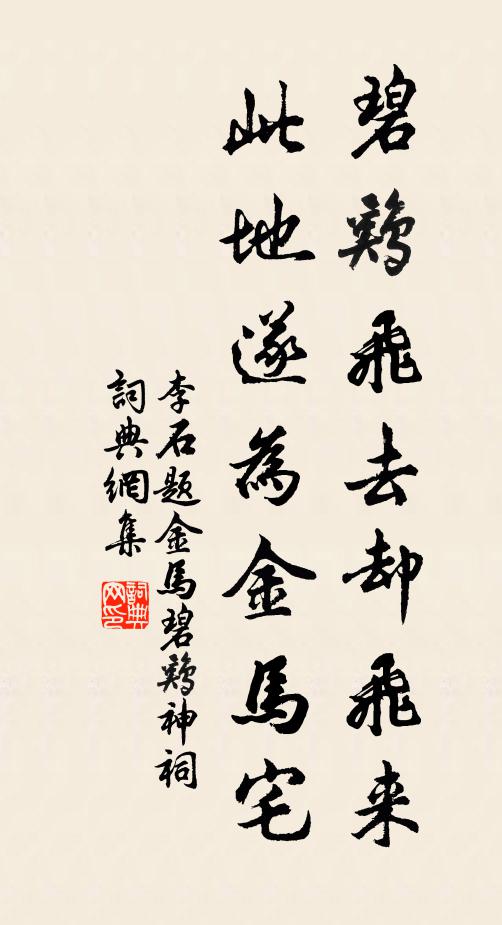 碧鷄飛去却飛来
此地遂為金馬宅
李石题金馬碧鷄神祠
詞典網集
詞典网印